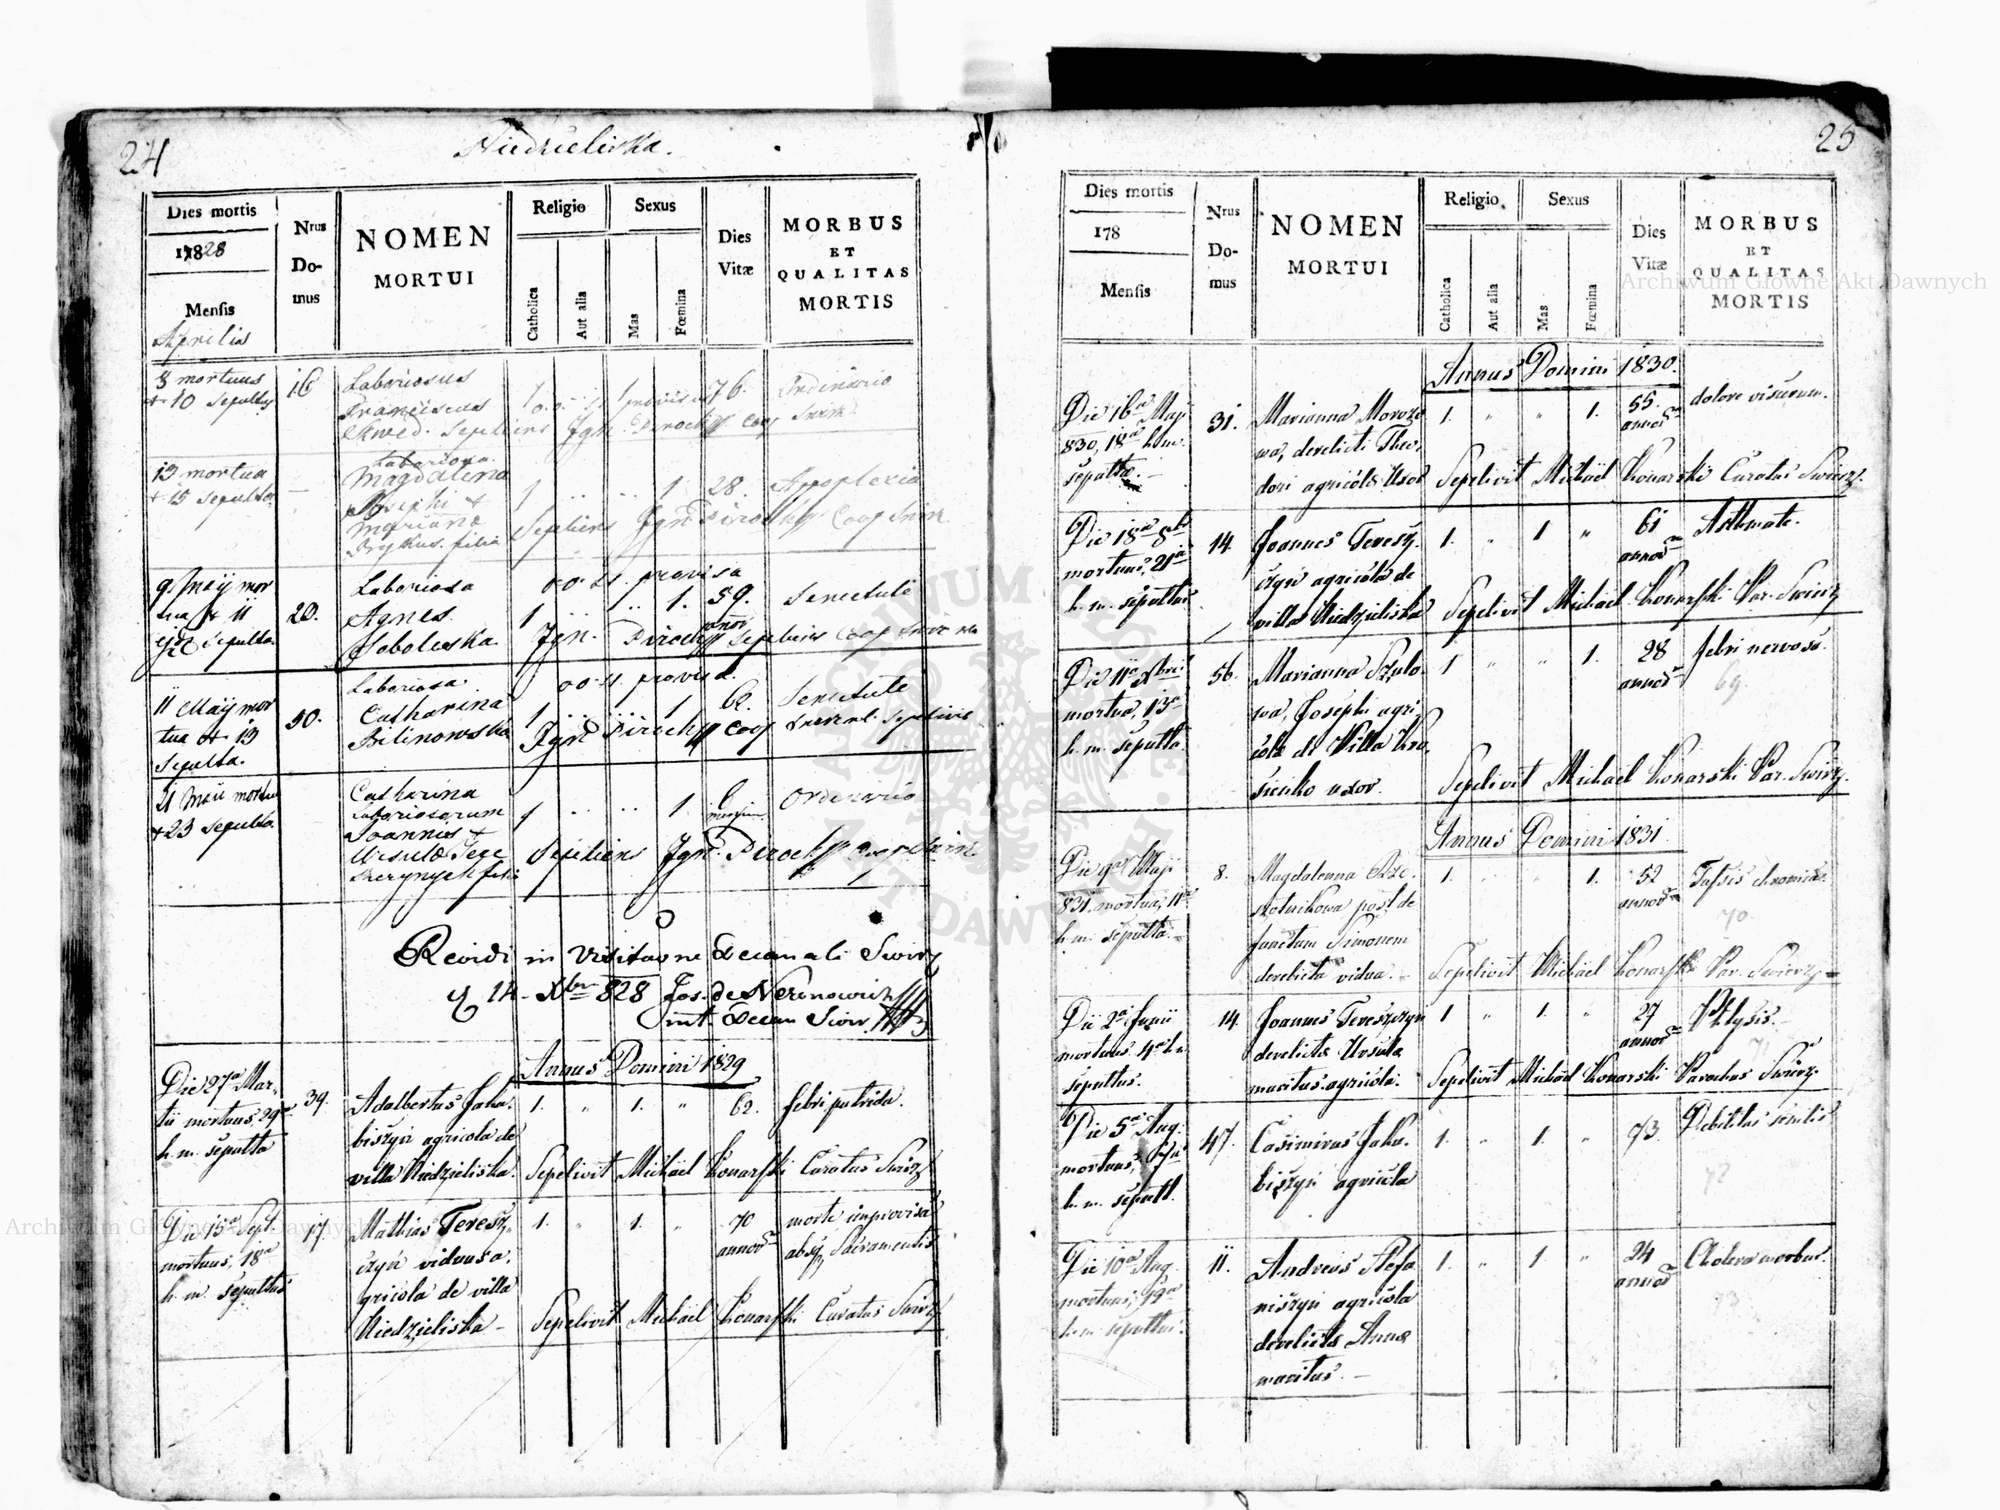 24
Niedzieliska.
Dies mortis
1828
Mensis
Aprilis
Nrus
Do-
mus
NOMEN
MORTUI
Religio
Catholica
Aut alia
Sexus
Mas
Fœmina
Dies
Vitæ
MORBUS
ET
QUALITAS
MORTIS
8 mortuus
+ 10 Sepultus
16
Laboriosus
Franciscus
Sepeliens Ign. Pirocky Coop
1
76.
Ordinario
13 mortua
+ 15 Sepulta.
Laboriosa
Magdalena
Josephi +
Mariana
filia
1
1
28.
Apoplexia
Sepeliens Ign. Pirocky Coop
9. Maij mor
tua + 11
Sepulta.
20.
Laboriosa
Agnes
Soboleska
provisa
1
1.
59.
Senectute
Ign. Pirocky Sepeliens Coop
11 Maij mor
tua + 13
Sepulta.
50.
Laboriosa
Catharina
Bilinowska
provisa
1
1
62.
Senectute
Ign. Pirocky Coop
21 Maii mortua
+ 23 Sepulta.
Catharina
Laboriosorum
Joannis +
Ursula
filia
1
1.
6
Ordinario
Sepeliens Ign. Pirocky Coop
Revidi in Visitatione Decanali Swirz
14 Xbris 828 Jos. de
Annus Domini 1829
Die 27a Mar-
tii mortuus, 29a
h. m. sepulta
39.
Adalbertus Jaku-
biszyn agricola de
villa Niedzieliska.
1. " 1. "
62.
febri putrida.
Sepelivit Michael Konarski Curatus Swirz
Die 15a Sept.
mortuus, 18a
h. m. sepultus
17.
Mathias Teresz-
czyn viduus a-
gricola de villa
Niedzieliska –
1. " 1. "
70
annor
morte improvisa
absq Sacramentis
Sepelivit Michael Konarski Curatus Swirz
25
Dies mortis
178
Mensis
Nrus
Do-
mus
NOMEN
MORTUI
Religio
Catholica
Aut alia
Sexus
Mas
Fœmina
Dies
Vitæ
MORBUS
ET
QUALITAS
MORTIS
Annus Domini 1830.
Die 16a Maji
830, 18a h. m.
sepulta. –
31.
Marianna Morozo
wa, derelicti Theo-
dori agricolæ Uxor
1. " " 1.
55.
annor
dolore viscerum.
Sepelivit Michael Konarski Curatus Swirz.
Die 18a 8br
mortuus, 21a
h. m. sepultus
14.
Joannes Teresz-
czyn agricola de
villa Niedzieliska
1. " 1 "
61
annor
Asthmate.
Sepelivit Michael Konarski Par. Swirz
Die 11a Xbris
mortua, 13a
h. m. sepulta
56.
Marianna Szulo-
wa, Josephi agri-
colæ de Villa
uxor.
1 " " 1.
28
annor
febri nervosa.
69.
Sepelivit Michael Konarski Par. Swirz.
Annus Domini 1831.
Die 9a Maji
831. mortua, 11a
h. m. sepulta. –
8.
Magdalenna
post de
functum Simonem
derelicta vidua. –
1. 1.
52
annor
Tussis chronica.
70.
Sepelivit Michael Konarski Par. Swirz –
Die 2a Junii
mortuus 4a h. m.
sepultus.
14.
Joannes Tereszczyn
derelictæ Ursulæ
maritus. agricola.
1 " 1. "
27
annor
Phtysis. –
71
Sepelivit Michael Konarski Parochus Swirz.
Die 5a Aug.
mortuus, 7a
h. m. sepult.
47.
Casimirus Jaku-
biszyn agricola
1. " 1. "
73.
Debilitas senilis
72
Die 10a Aug.
mortuus, 12a
h. m. sepultus.
11.
Andreas Stefa
niszyn agricola
derelictæ Annæ
maritus. –
1. " 1. "
24
annor
Cholera morbus.
73
Archiwum Główne Akt Dawnych
Archiwum Główne Akt Dawnych
ARCHIWUM GŁÓWNE · AKT DAWNYCH ·